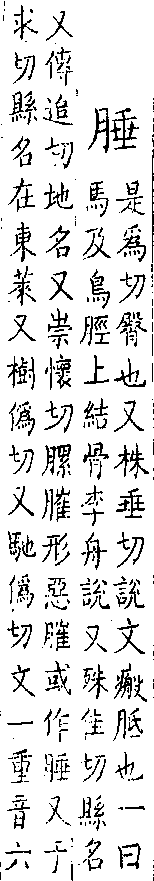 腄
是爲切臀也又株垂切說文瘢胝也一曰
馬及鳥脛上結骨李舟說又殊隹切縣名
又傳追切地名又崇懷切膗形惡膗或作腄又于
求切縣名在東萊又樹僞切又馳僞切文一重音六